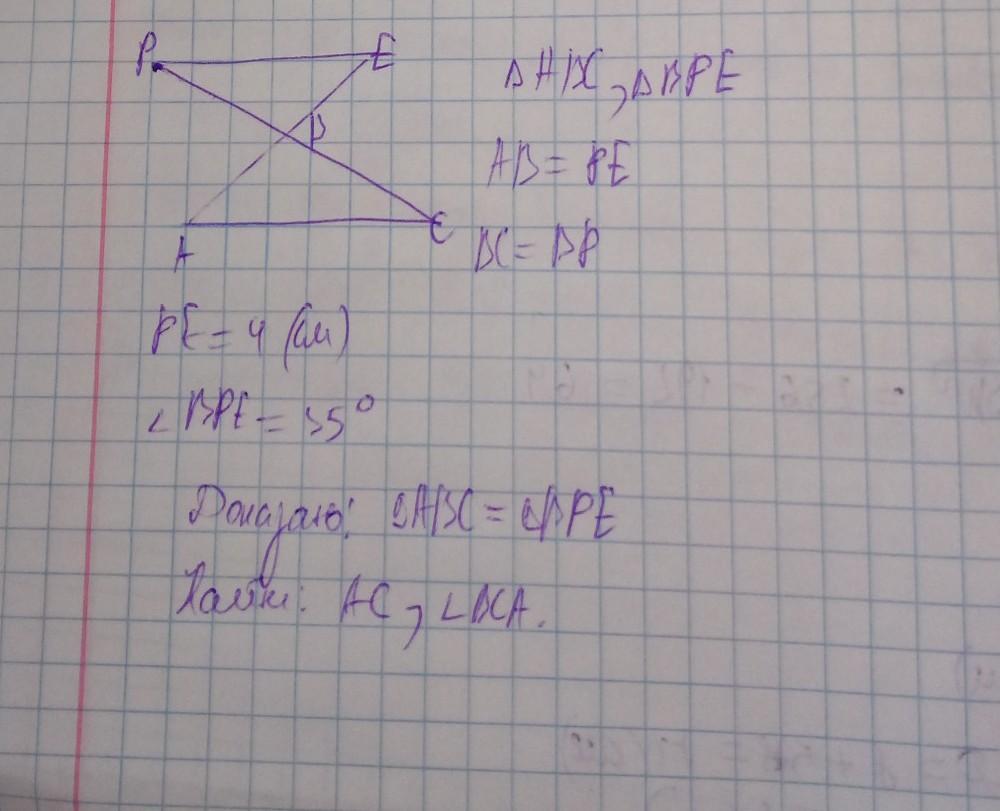 P E
B
A C
ΔABC, ΔBPE
AB = PE
BC = BP
PE = 4 (см)
∠BPE = 35°
Доказать: ΔABC = ΔBPE
Найти: AC, ∠BCA.